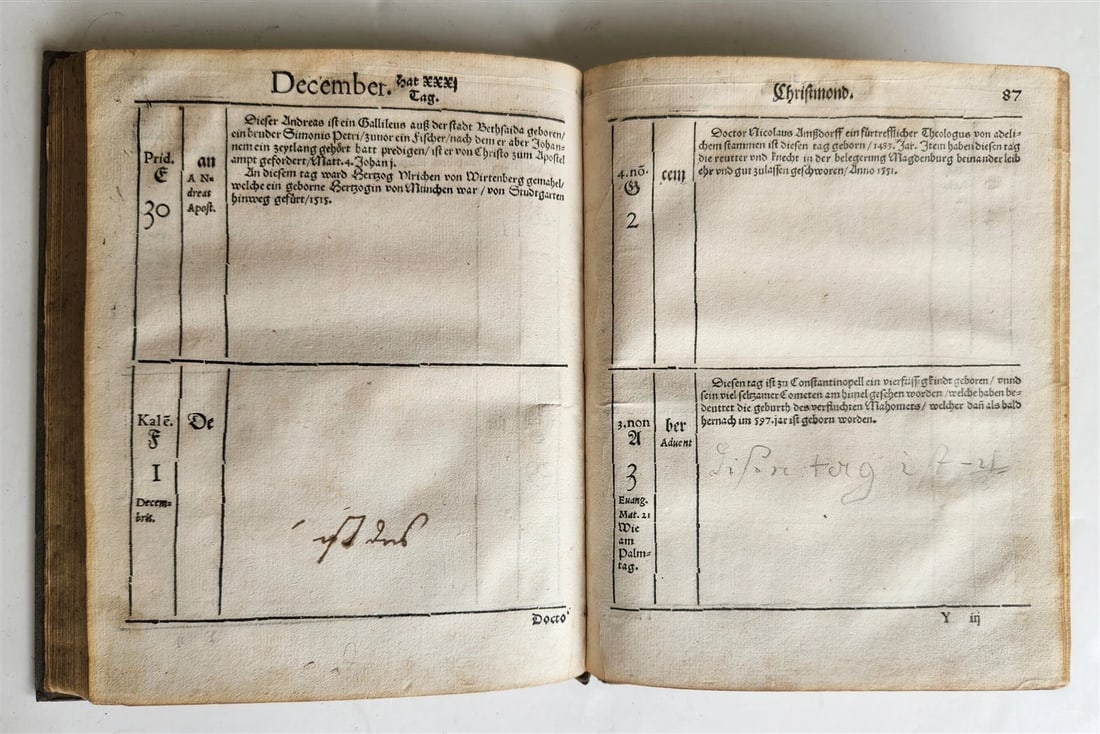 December. Hat XXXj
Tag.
Prid.
E
30
an
A N=
dreas
Apost.
Dieser Andreas ist ein Gallileus auß der stadt Bethsaida geboren/
ein bruder Simonis Petri/zuuor ein Fischer/nach dem er aber Johan=
nem ein zeytlang gehört hatt predigen/ist er von Christo zum Apostel
ampt gefordert/Matt.4.Johan j.
An diesem tag ward Hertzog Vlrichen von Wirtenberg gemahel/
welche ein geborne Hertzogin von München war/von Studtgarten
hinweg gefürt/1515.
Kalē.
F
1
Decem=
bris.
De
ist des
Docto
Christmond. 87
4.nō.
G
2
cem
Doctor Nicolaus Amßdorff ein fürtrefflicher Theologus von adeli=
chem stammen ist diesen tag geborn/1483. Jar. Item haben diesen tag
die reutter vnd knecht in der belegerung Magdenburg beinander leib
ehr vnd gut zulassen geschworen/Anno 1551.
3.non
A
3
Euang.
Mat. 21
Wie
am
Palm=
tag.
ber
Aduent
Diesen tag ist zu Constantinopell ein vierfüssig kindt geboren/vnnd
sein viel seltzamer Cometen am himel gesehen worden/welche haben be=
deuttet die geburth des verfluchten Mahomets/welcher dañ als bald
hernach im 597.jar ist geborn worden.
Y iij